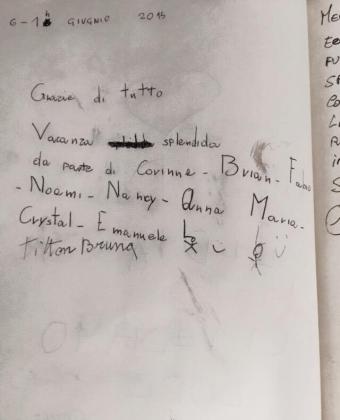 6-1 GIUGNO 2015
Grazie di tutto
Vacanza splendida
da parte di Corinne - Brian - Fabio
- Noemi - Nancy - Anna Maria -
Crystal - Emanuele
Bruna